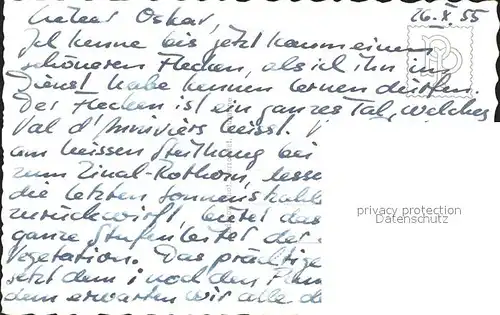 Lieber Oskar, 26. X. 55
Ich kenne bis jetzt kaum einen
schöneren Flecken, als ich ihn im
Dienst habe kennen lernen dürfen.
Der Flecken ist ein ganzes Tal, welches
Val d'Anniviers heisst.
am heissen Steilhang bei
zum Zinal-Rothorn, desse
die letzten Sonnenstrahle
zurückwirft, bietet das
ganze Stufenleiter der
Vegetation. Das prächtige
setzt dem i noch den Pun
dem erwarten wir alle d
privacy protection
Datenschutz